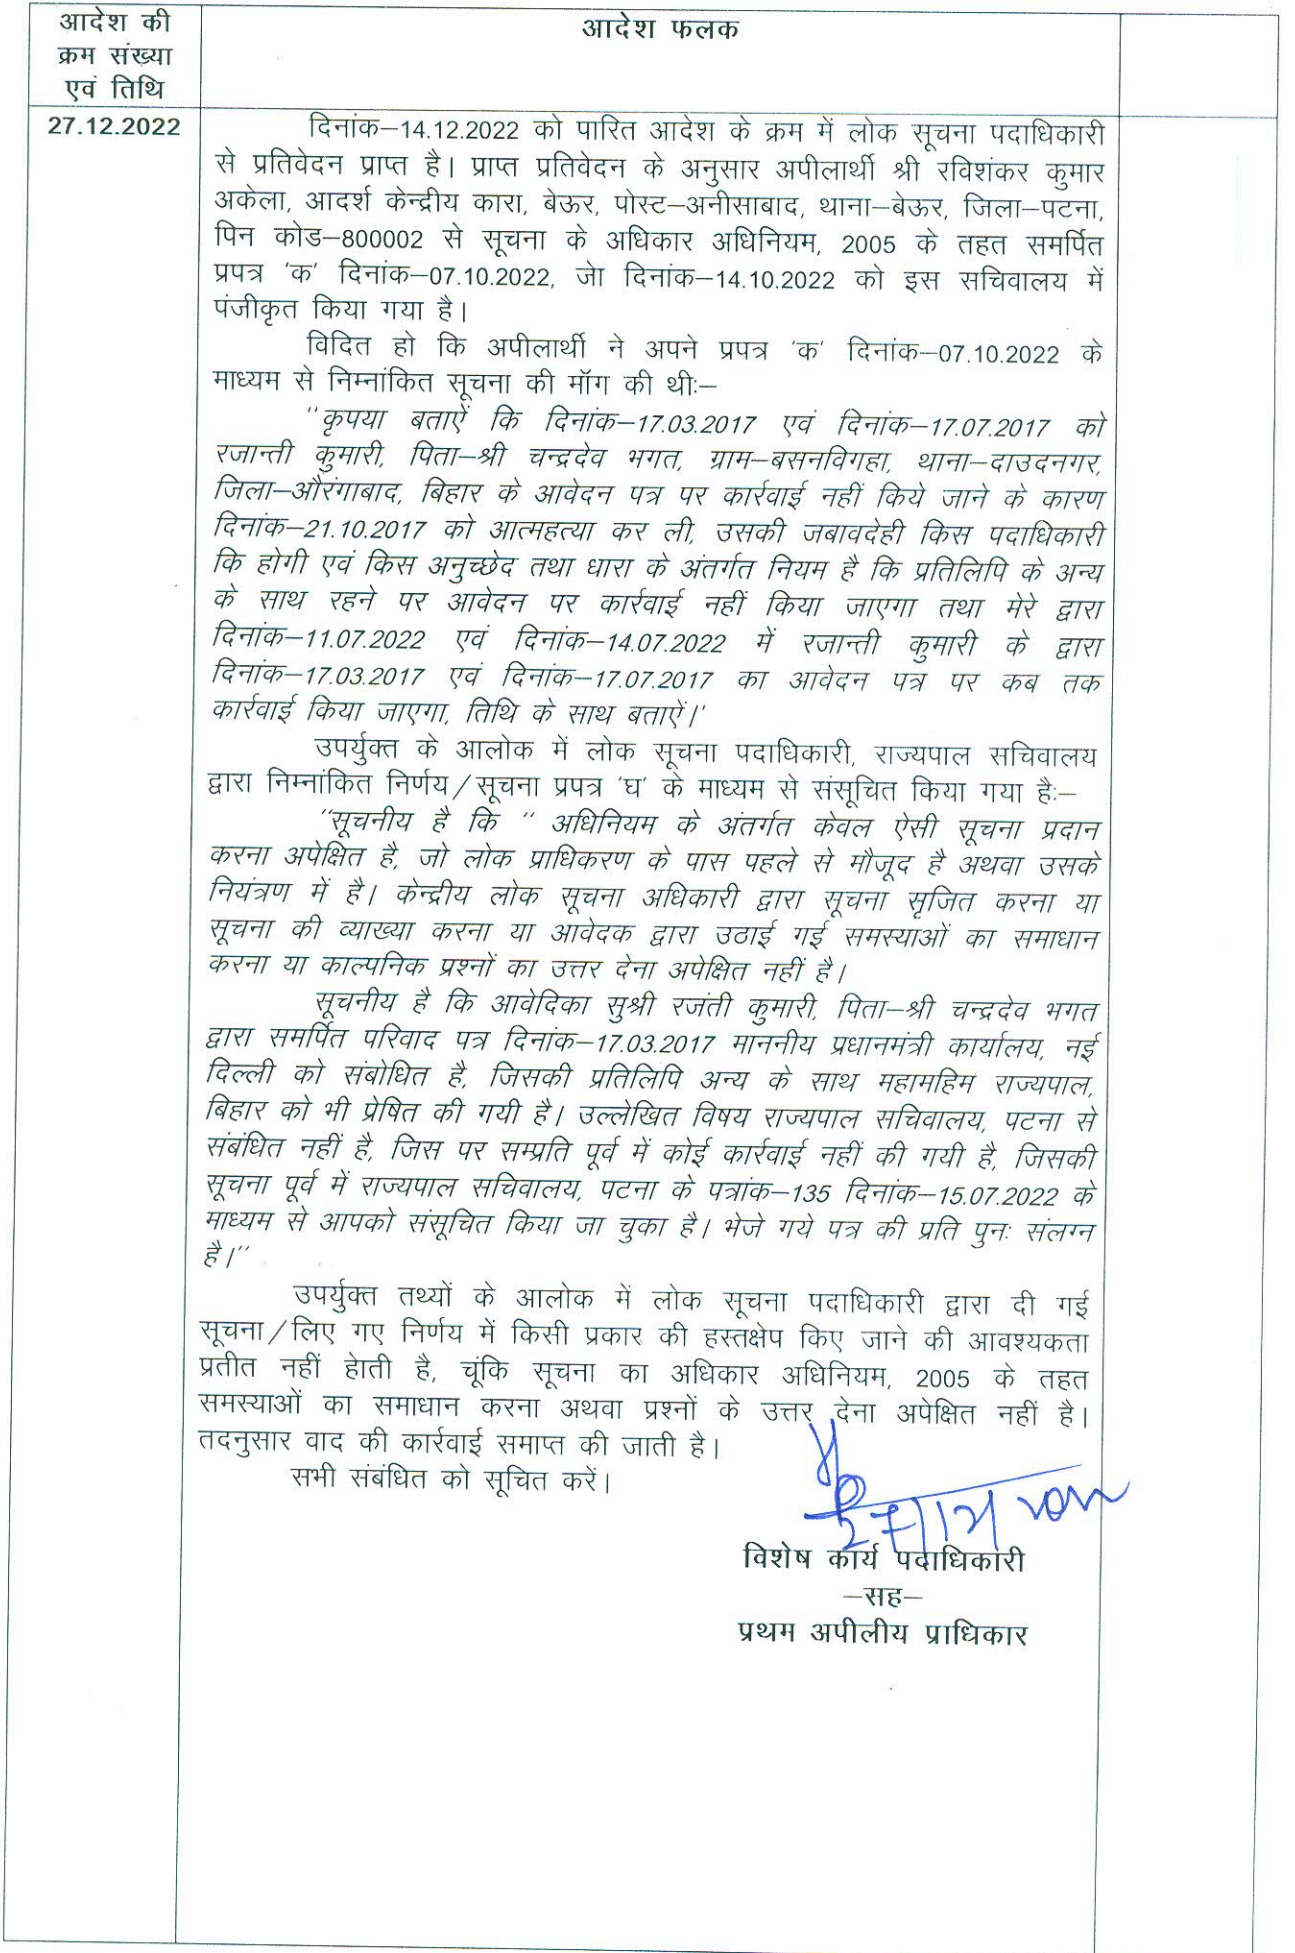 आदेश की
क्रम संख्या
एवं तिथि
आदेश फलक
27.12.2022
दिनांक–14.12.2022 को पारित आदेश के क्रम में लोक सूचना पदाधिकारी
से प्रतिवेदन प्राप्त है। प्राप्त प्रतिवेदन के अनुसार अपीलार्थी श्री रविशंकर कुमार
अकेला, आदर्श केन्द्रीय कारा, बेऊर, पोस्ट–अनीसाबाद, थाना–बेऊर, जिला–पटना,
पिन कोड–800002 से सूचना के अधिकार अधिनियम, 2005 के तहत समर्पित
प्रपत्र 'क' दिनांक–07.10.2022, जेा दिनांक–14.10.2022 को इस सचिवालय में
पंजीकृत किया गया है।
विदित हो कि अपीलार्थी ने अपने प्रपत्र 'क' दिनांक–07.10.2022 के
माध्यम से निम्नांकित सूचना की मॉग की थीः–
''कृपया बताऐं कि दिनांक–17.03.2017 एवं दिनांक–17.07.2017 को
रजान्ती कुमारी, पिता–श्री चन्द्रदेव भगत, ग्राम–बसनविगहा, थाना–दाउदनगर,
जिला–औरंगाबाद, बिहार के आवेदन पत्र पर कार्रवाई नहीं किये जाने के कारण
दिनांक–21.10.2017 को आत्महत्या कर ली, उसकी जबावदेही किस पदाधिकारी
कि होगी एवं किस अनुच्छेद तथा धारा के अंतर्गत नियम है कि प्रतिलिपि के अन्य
के साथ रहने पर आवेदन पर कार्रवाई नहीं किया जाएगा तथा मेरे द्वारा
दिनांक–11.07.2022 एवं दिनांक–14.07.2022 में रजान्ती कुमारी के द्वारा
दिनांक–17.03.2017 एवं दिनांक–17.07.2017 का आवेदन पत्र पर कब तक
कार्रवाई किया जाएगा, तिथि के साथ बताऐं।'
उपर्युक्त के आलोक में लोक सूचना पदाधिकारी, राज्यपाल सचिवालय
द्वारा निम्नांकित निर्णय/सूचना प्रपत्र 'घ' के माध्यम से संसूचित किया गया हैः–
''सूचनीय है कि '' अधिनियम के अंतर्गत केवल ऐसी सूचना प्रदान
करना अपेक्षित है, जो लोक प्राधिकरण के पास पहले से मौजूद है अथवा उसके
नियंत्रण में है। केन्द्रीय लोक सूचना अधिकारी द्वारा सूचना सृजित करना या
सूचना की व्याख्या करना या आवेदक द्वारा उठाई गई समस्याओं का समाधान
करना या काल्पनिक प्रश्नों का उत्तर देना अपेक्षित नहीं है।
सूचनीय है कि आवेदिका सुश्री रजंती कुमारी, पिता–श्री चन्द्रदेव भगत
द्वारा समर्पित परिवाद पत्र दिनांक–17.03.2017 माननीय प्रधानमंत्री कार्यालय, नई
दिल्ली को संबोधित है, जिसकी प्रतिलिपि अन्य के साथ महामहिम राज्यपाल,
बिहार को भी प्रेषित की गयी है। उल्लेखित विषय राज्यपाल सचिवालय, पटना से
संबंधित नहीं है, जिस पर सम्प्रति पूर्व में कोई कार्रवाई नहीं की गयी है, जिसकी
सूचना पूर्व में राज्यपाल सचिवालय, पटना के पत्रांक–135 दिनांक–15.07.2022 के
माध्यम से आपको संसूचित किया जा चुका है। भेजे गये पत्र की प्रति पुनः संलग्न
है।''
उपर्युक्त तथ्यों के आलोक में लोक सूचना पदाधिकारी द्वारा दी गई
सूचना/लिए गए निर्णय में किसी प्रकार की हस्तक्षेप किए जाने की आवश्यकता
प्रतीत नहीं हेाती है, चूंकि सूचना का अधिकार अधिनियम, 2005 के तहत
समस्याओं का समाधान करना अथवा प्रश्नों के उत्तर देना अपेक्षित नहीं है।
तदनुसार वाद की कार्रवाई समाप्त की जाती है।
सभी संबंधित को सूचित करें।
विशेष कार्य पदाधिकारी
–सह–
प्रथम अपीलीय प्राधिकार